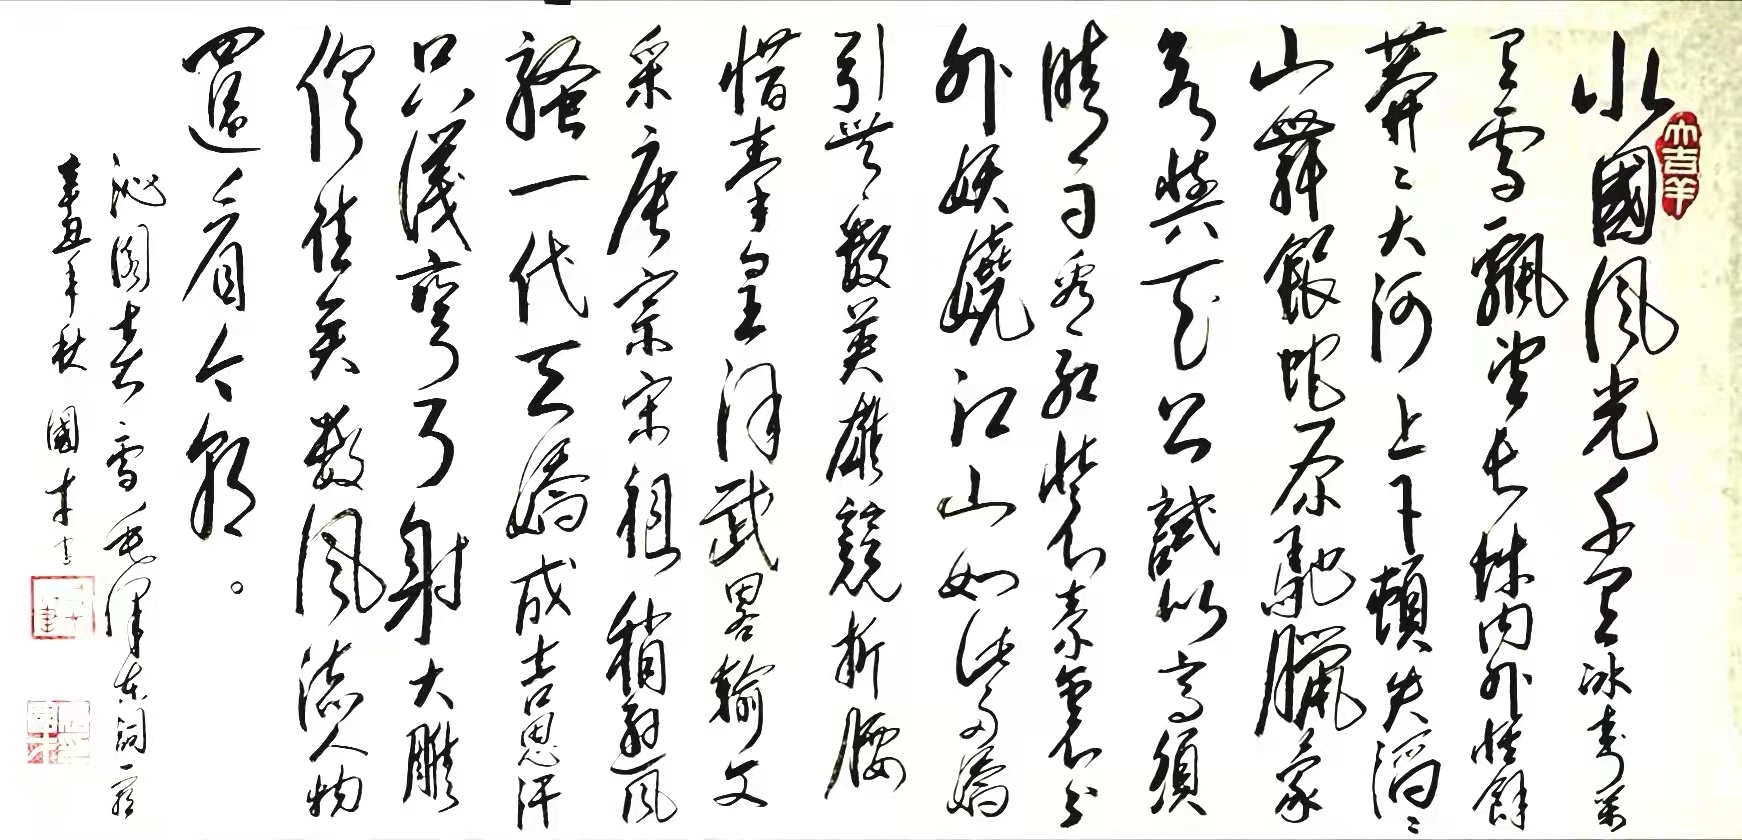 大吉羊
北國風光千里冰封萬
里雪飄望長城內外惟餘
莽〻大河上下頓失滔〻
山舞銀蛇原馳臘象
欲與天公試比高須
晴日看紅裝素裹分
外妖嬈江山如此多嬌
引無數英雄競折腰
惜秦皇漢武畧輸文
采唐宗宋祖稍遜風
騷一代天嬌成吉思汗
只識彎弓射大雕
俱往矣數風流人物
還看今朝。
沁園春雪毛澤東詞一首
辛丑年秋 國